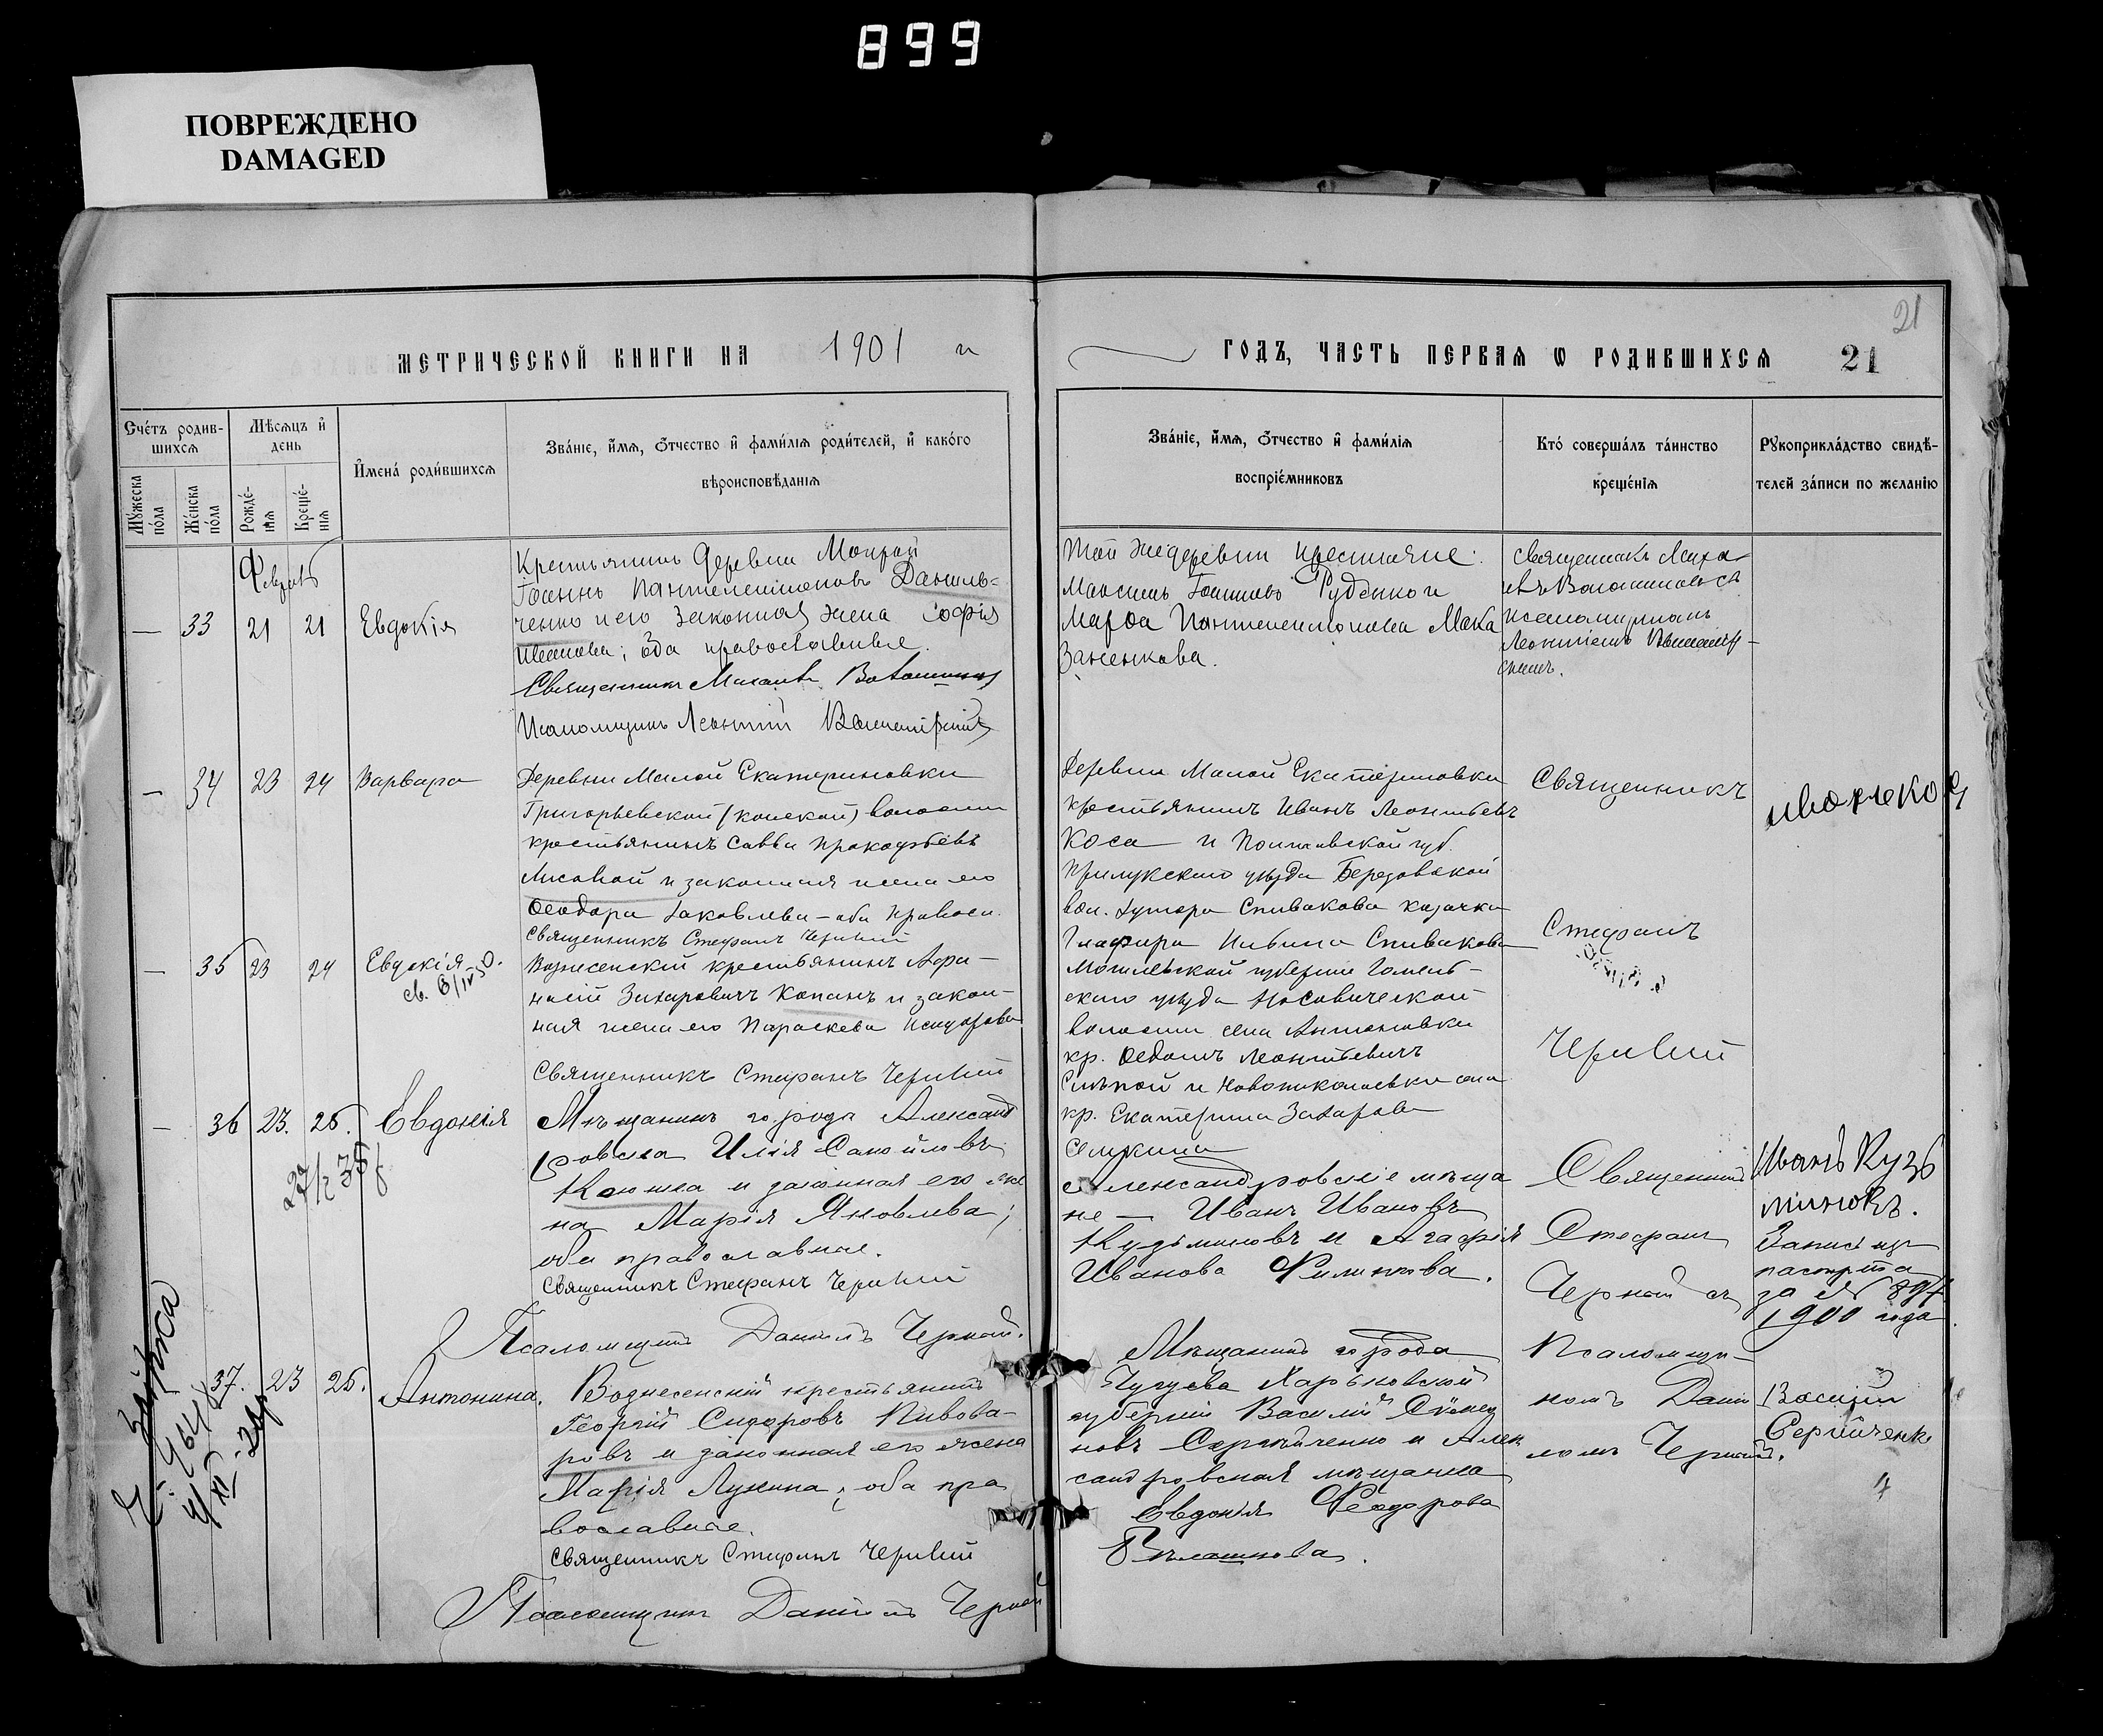 899
ПОВРЕЖДЕНО
DAMAGED
21
МЕТРИЧЕСКОЙ КНИГИ НА 1901 й
ГОДЪ, ЧАСТЬ ПЕРВАЯ Ѡ РОДИВШИХСЯ 21
Счетъ родив-
шихся
Мѣсяцъ и
день
Имена родившихся
Званіе, имя, отчество и фамилія родителей, и какого
вѣроисповѣданія
Мужеска пола
Женска пола
Рожде-
нія
Креще-
нія
Званіе, имя, отчество и фамилія
воспріемниковъ
Кто совершалъ таинство
крещенія
Рукоприкладство свидѣ-
телей записи по желанію
— 33 21 21 Евдокія
Крестьянинъ деревни Мокрой
Іоаннъ Пантелеимоновъ Даниль-
ченко и его законная жена Софія
Иванова; оба православные.
Священникъ Михаилъ Волошиновъ
Псаломщикъ Леонтій
Той же деревни крестьяне:
Максимъ Іоанновъ Руденко и
Марфа Пантелеимонова Мака
заненкова.
Священникъ Миха
илъ Волошиновъ съ
псаломщикомъ
Леонтіемъ
скимъ.
— 34 23 24 Варвара
Деревни Малой Екатериновки
Григорьевской (конской) волости
крестьянинъ Савва Прокофьевъ
Лисовой и законная жена его
Ѳеодора Іаковлева — оба правосл.
Священникъ Стефанъ Черный
Деревни Малой Екатериновки
крестьянинъ Иванъ Леонтьевъ
Коса и Полтавской губ.
Прилукскаго уѣзда Березовской
вол. хутора Спивакова казачка
Глафира Ильина Спивакова
Священникъ
Стефанъ
Черный
— 35 23 24 Евдокія
Вознесенскій крестьянинъ Афа-
насій Захаровичъ Копанъ и закон-
ная жена его Параскева Исидорова
Священникъ Стефанъ Черный
Могилевской губерніи Гомель-
скаго уѣзда Носовической
волости села Антоновки
кр. Ѳедотъ Леонтьевичъ
Слѣпой и Новониколаевки села
кр. Екатерина Захарова
Семкина
— 36 23. 25. Евдокія
Мѣщанинъ города Александ
ровска Илія Самойловъ
Клюшка и законная его же
на Марія Яковлева;
оба православные.
Священникъ Стефанъ Черный
Псаломщикъ Даніилъ Черный.
Александровскіе мѣща
не — Иванъ Ивановъ
Кузьминовъ и Агафія
Иванова Филиппова.
Священникъ
Стефанъ
Черный съ
Псаломщи-
комъ Даніи
ломъ Чернымъ.
Иванъ Кузь
миновъ.
за № 894
1900 года
37. 23 25. Антонина.
Вознесенскій крестьянинъ
Георгій Сидоровъ Пивова-
ровъ и законная его жена
Марія Лукина, оба пра
вославные.
Священникъ Стефанъ Черный
Псаломщикъ Даніилъ Черный
Мѣщанинъ города
Чугуева Харьковской
губерніи Василій Сѵмео
новъ Сергійченко и Алек
сандровская мѣщанка
Евдокія Ѳеодорова
Бѣлашкова.
Василій
Сергійченко